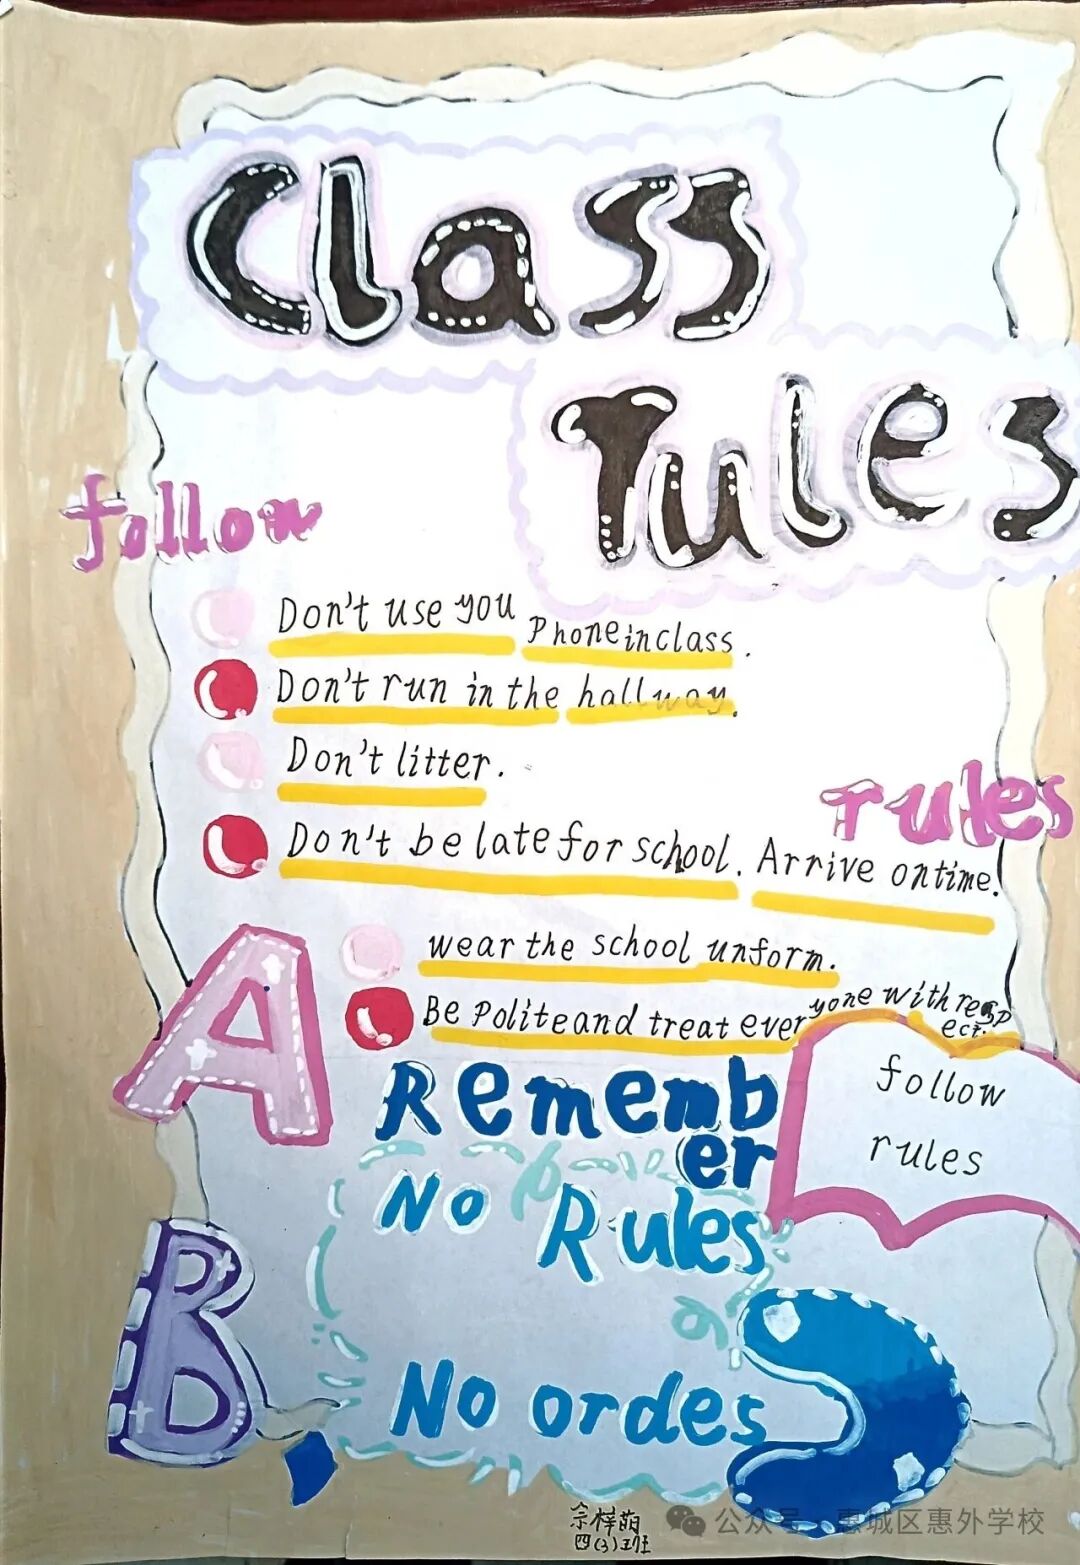 Class
rules
follow
Don't use you Phone in class.
Don't run in the hallway.
Don't litter.
rules
Don't be late for school. Arrive on time.
wear the school unform.
Be Polite and treat everyone with respect.
A
follow
rules
Remember
No Rules
B
S
No ordes
四(3)班
公众号·惠城区惠外学校